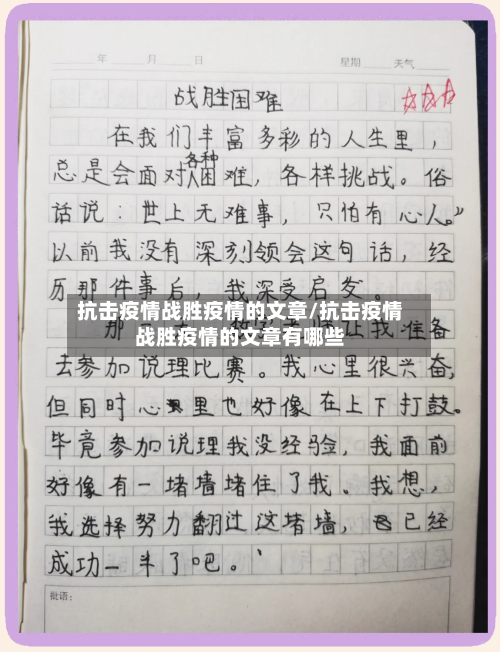 年 月 日 星期 天气
战胜困难
在我们丰富多彩的人生里，
总是会面对各种困难，各样挑战。俗
话说：世上无难事，只怕有心人。”
以前我没有深刻领会这句话，经
历那件事后，我深受启发
抗击疫情战胜疫情的文章/抗击疫情
战胜疫情的文章有哪些
那一 让我准备
去参加说理比赛。我心里很兴奋，
但同时心里也好像在上下打鼓。
毕竟参加说理我没经验，我面前
好像有一堵墙堵住了我。我想，
我选择努力翻过这堵墙，已经
成功一半了吧。
批语：